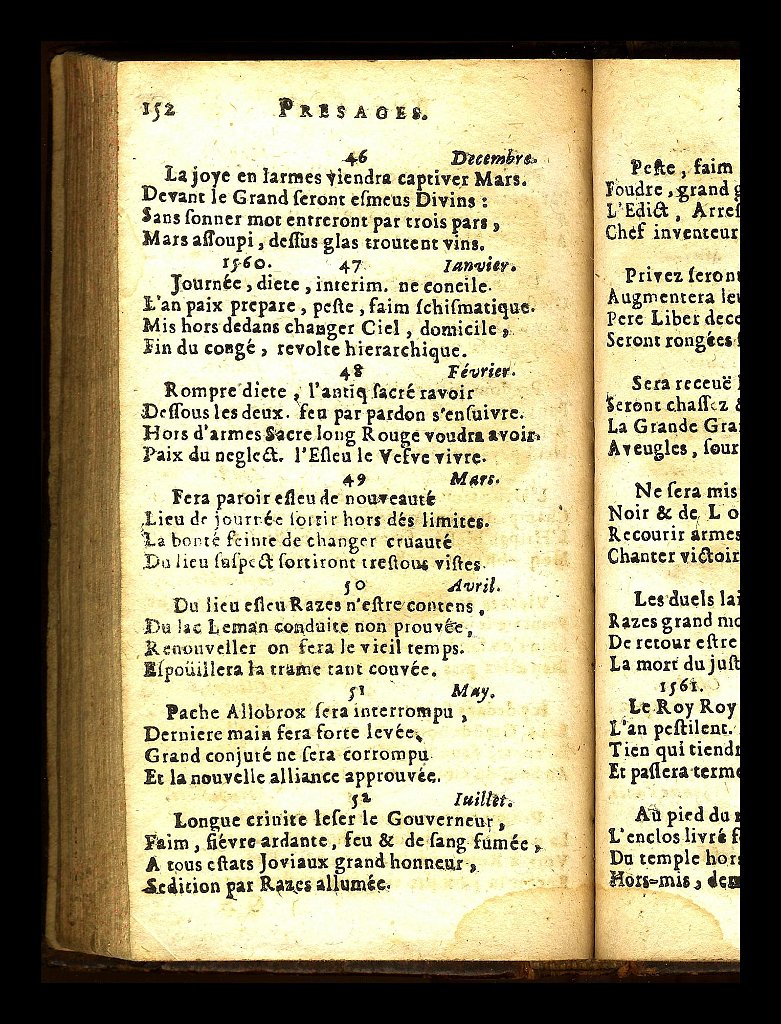 152 PRESAGES.
46 Decembre.
La joye en larmes viendra captiver Mars.
Devant le Grand ſeront eſmeus Divins :
Sans ſonner mot entreront par trois pars ,
Mars aſſoupi , deſſus glas troutent vins.
1560. 47 Ianvier.
Journée , diete , interim. ne concile.
L'an paix prepare , peſte , faim ſchiſmatique.
Mis hors dedans changer Ciel , domicile ,
Fin du congé , revolte hierarchique.
48 Février.
Rompre diete , l'antiq ſacré ravoir
Deſſous les deux. feu par pardon s'enſuivre.
Hors d'armes Sacre long Rouge voudra avoir.
Paix du neglect. l'Eſleu le Veſve vivre.
49 Mars.
Fera paroir eſleu de nouveauté
Lieu de journée ſortir hors des limites.
La bonté feinte de changer cruauté
Du lieu ſuſpect ſortiront treſtous viſtes.
50 Avril.
Du lieu eſleu Razes n'eſtre contens ,
Du lac Leman conduite non prouvée ,
Renouveller on fera le vieil temps.
Eſpoüillera la trame tant couvée.
51 May.
Pache Allobrox ſera interrompu ,
Derniere main fera forte levée ,
Grand conjuté ne ſera corrompu
Et la nouvelle alliance approuvée.
52 Iuillet.
Longue crinite leſer le Gouverneur ,
Faim , fiévre ardante , feu & de ſang fumée ,
A tous eſtats Joviaux grand honneur ,
Sedition par Razes allumée.
Peſte , faim
Foudre , grand g
L'Edict , Arreſ
Chef inventeur
Privez ſeront
Augmentera
Pere Liber dece
Seront rongées
Sera receuë
Seront chaſſez
La Grande Gra
Aveugles , ſour
Ne ſera mis
Noir & de L o
Recourir armes
Chanter victoir
Les duels lai
Razes grand mo
De retour eſtre
La mort du juſt
1561.
Le Roy Roy
L'an peſtilent.
Tien qui tiendr
Et paſſera terme
Au pied du
L'enclos livré f
Du temple hors
Hors-mis ,